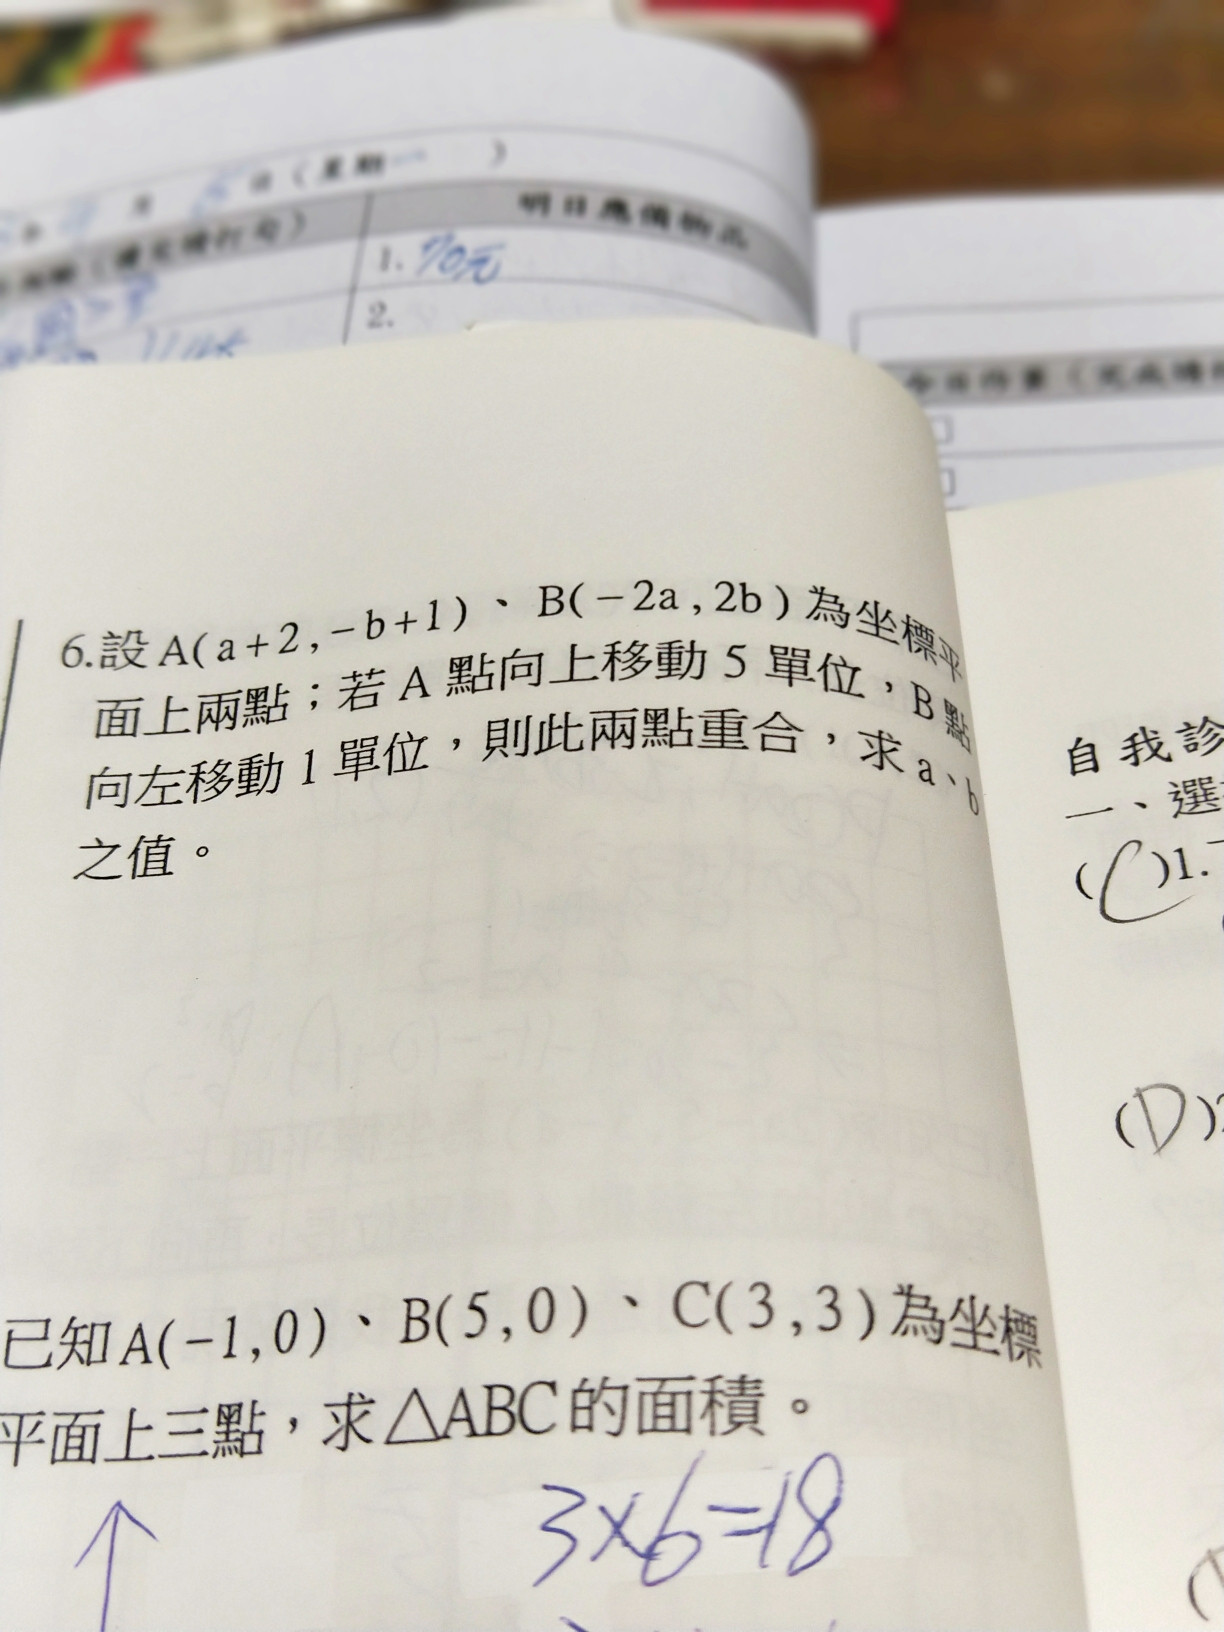 月 日（星期一 ）
明日應備物品
1. 70元
2.
今日作業（完成
6.設A(a+2,-b+1)、B(-2a,2b)為坐標平
面上兩點；若A點向上移動5單位，B點
向左移動1單位，則此兩點重合，求a、b
之值。
自我診
一、選
(C)1.
(D)2
已知A(-1,0)、B(5,0)、C(3,3)為坐標
平面上三點，求△ABC的面積。
3×6=18